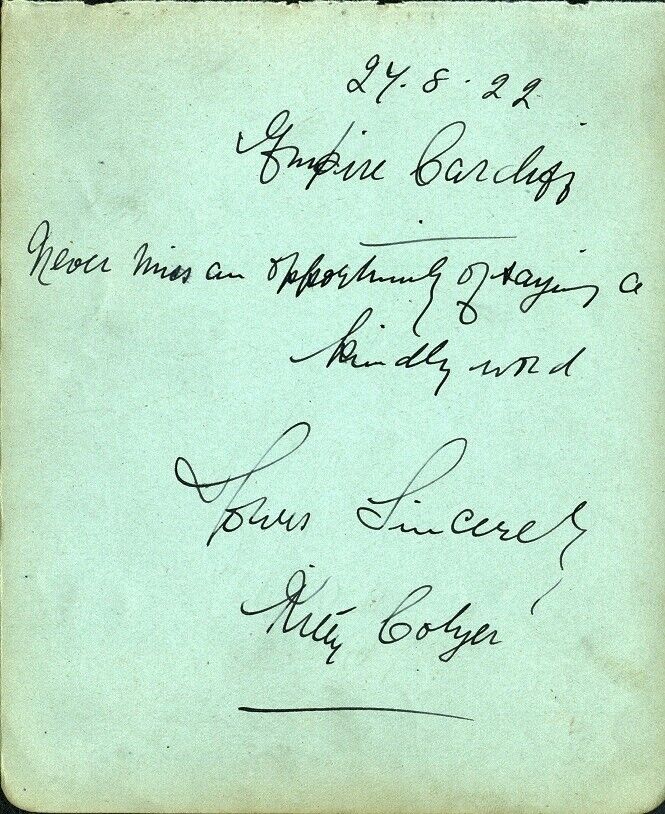 24.8.22
Empire Cardiff
Never miss an opportunity of saying a
kindly word
Yours Sincerely
Kitty Colyer